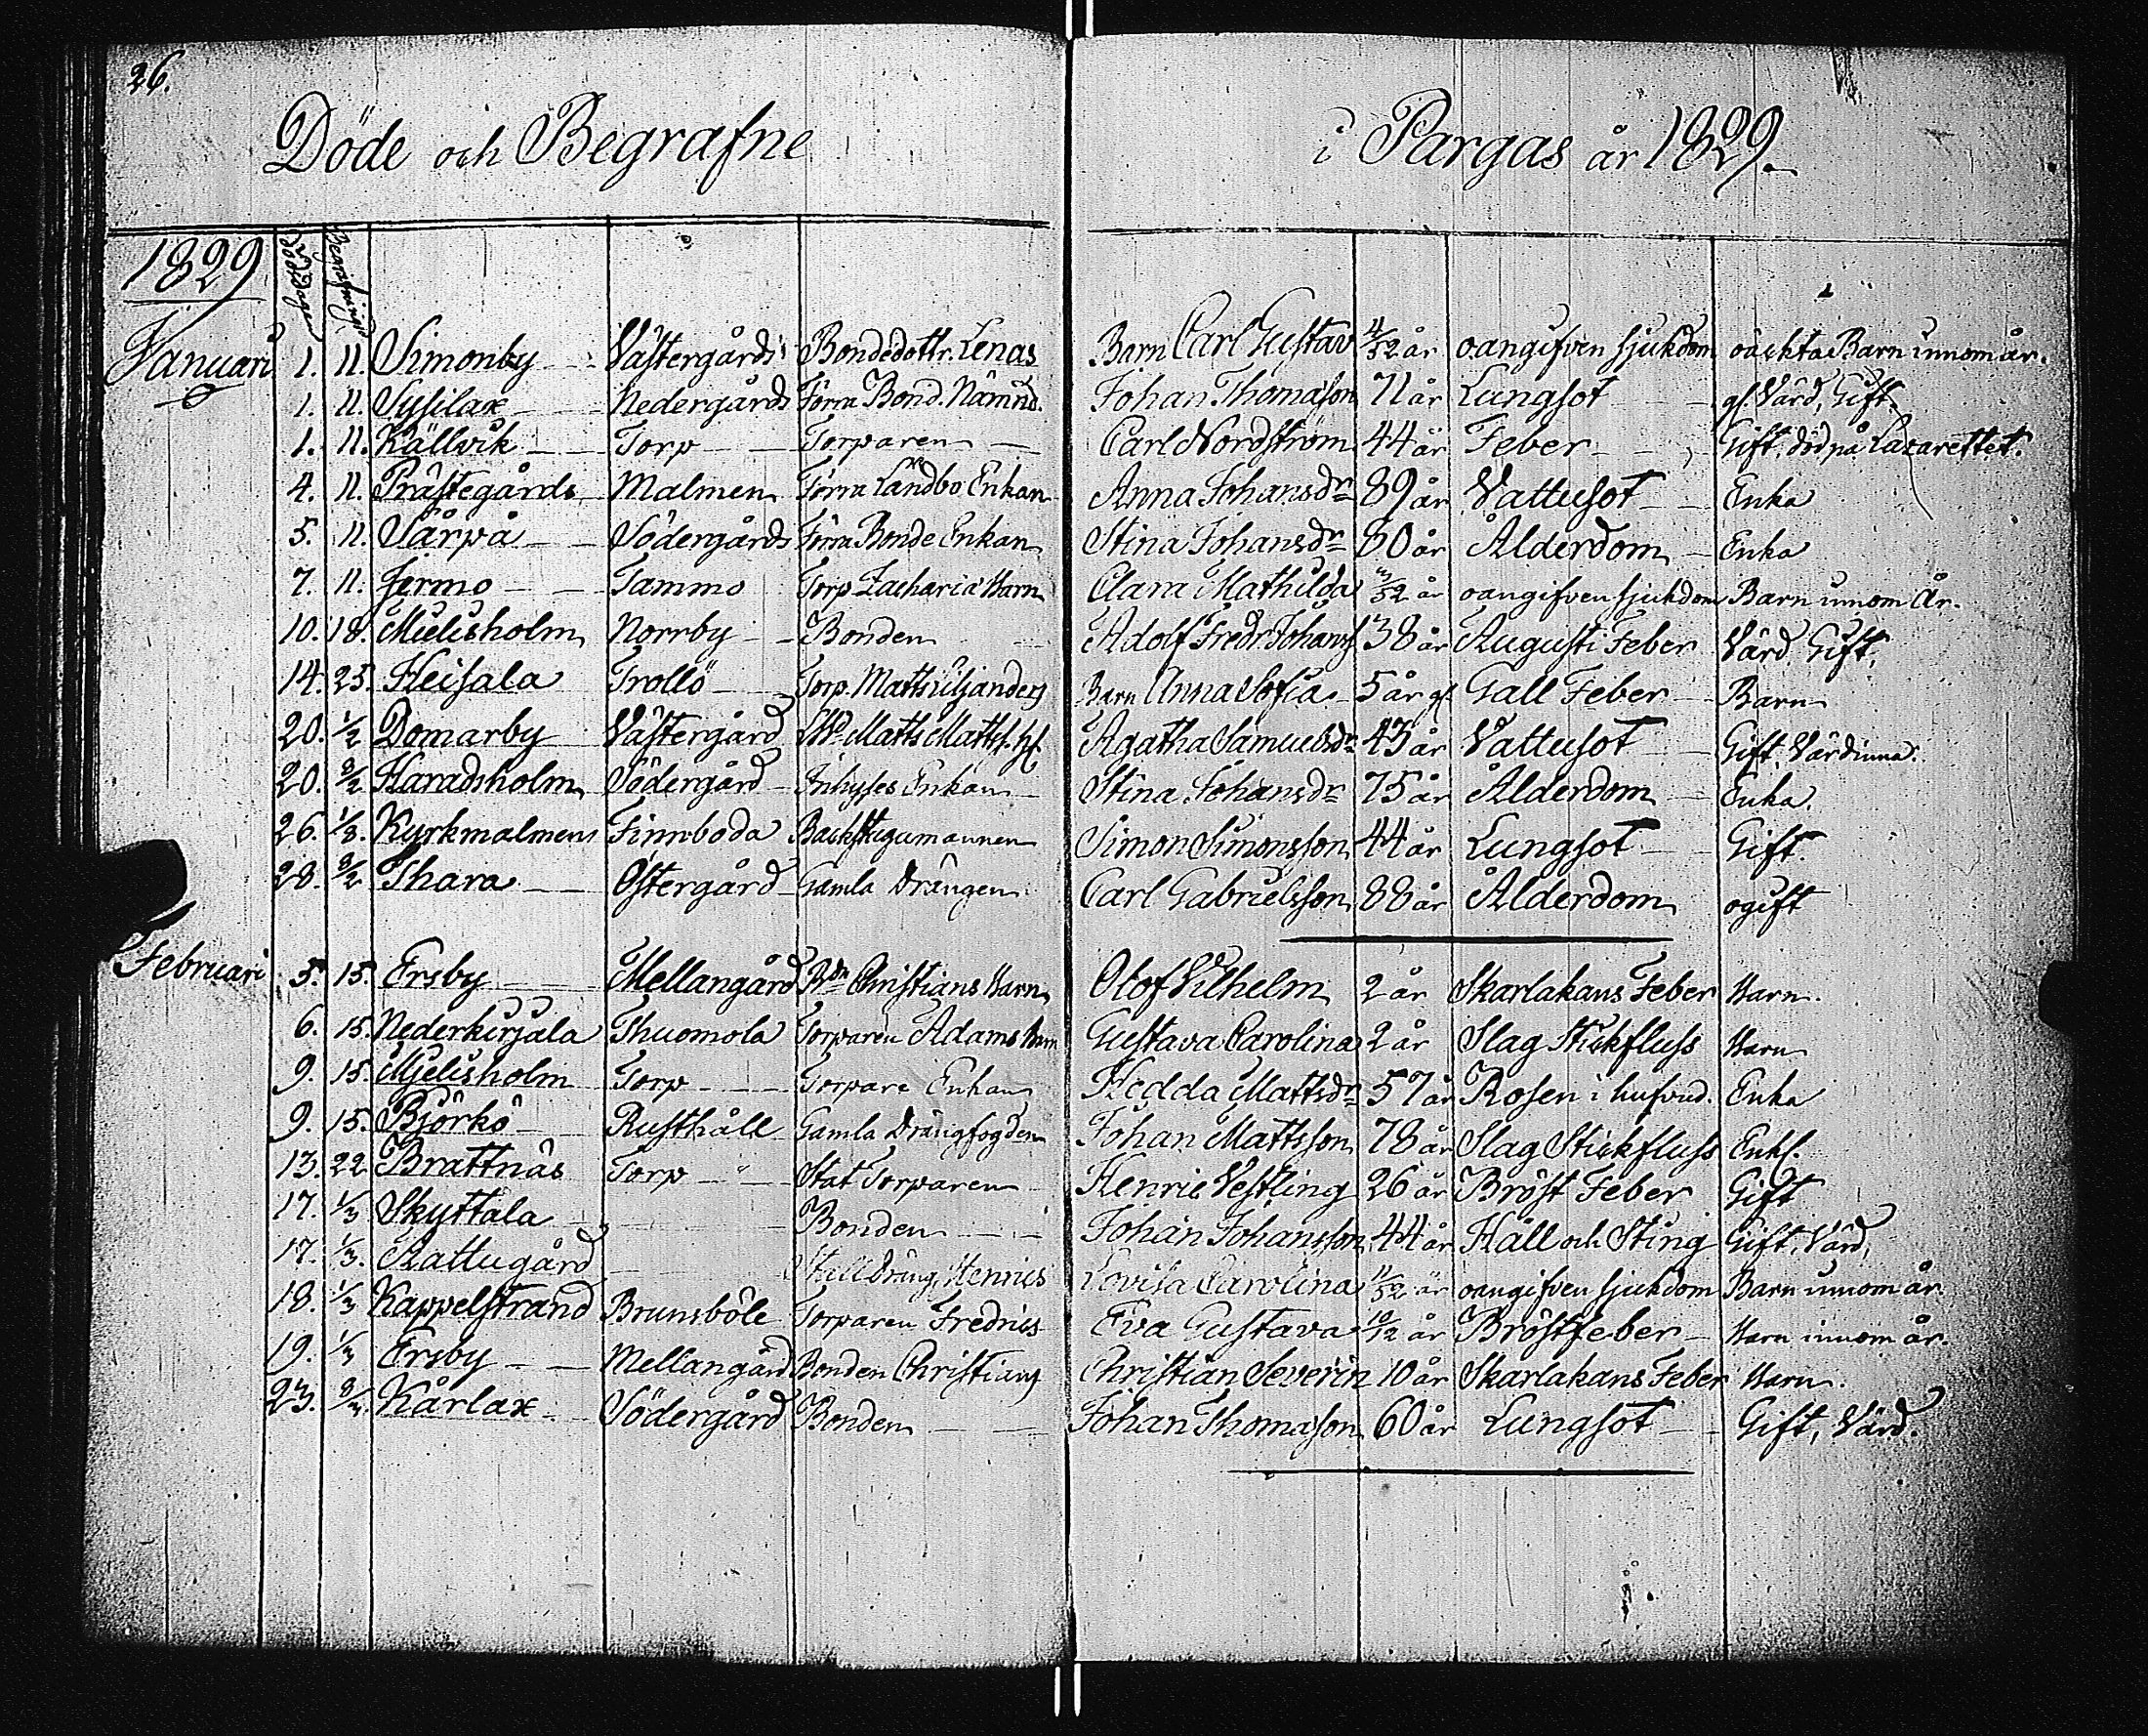 26.
Döde och Begrafne i Pargas år 1829.
1829 Dödsdage Begrafnings
Januari 1. 11. Simonby Västergårds Bondedottr. Lenas Barn Carl Gustav 4/52 år oangifven sjukdom oäckta Barn innom år.
1. 11. Sysilax Nedergårds Förra Bond. Nämnd. Johan Thomasson 71 år Lungsot gl. Värd, Gift.
1. 11. Källvik Torp Torparen Carl Nordström 44 år Feber Gift, död på Lazarettet.
4. 11. Prästegårds Malmen Förra Landbo Enkan Anna Johansdr 89 år Vattusot Enka
5. 11. Sårpå Södergårds Förra Bonde Enkan Stina Johansdr 80 år Ålderdom Enka
7. 11. Jermo Tammo Torp. Zacharia Barn Clara Mathilda /52 år oangifven sjukdom Barn innom År.
10. 18. Mielisholm Norrby Bonden Adolf Fredr. Johanss 38 år Augusti Feber Värd, Gift.
14. 25. Heisala Trollö Torp. Matts Siljanders Barn Anna Sofia 5 år gl. Gall Feber Barn
20. 1/2 Domarby Västergård Matts Mattss. Agatha Samuelsdr 43 år Vattusot Gift, Värdinna.
20. 8/2 Haradsholm Södergård Inhyses Enkan Stina Johansdr 75 år Ålderdom Enka.
26. 1/8. Kyrkmalmens Finnboda Backstugumannen Simon Simonsson 44 år Lungsot Gift.
28. 8/2 Thara Östergård Gamla Drängen Carl Gabrielsson 88 år Ålderdom ogift
Februari 5. 15. Ersby Mellangård Bdn Christians Barn Olof Vilhelm 2 år Skarlakans Feber Barn.
6. 15. Nederkirjala Thuomola Torparen Adams Barn Gustava Carolina 2 år Slag Stickfluss Barn
9. 15. Mjelisholm Torp Torpare Enkan Hedda Mattsdr 57 år Rosen i hufvud. Enka
9. 15. Björkö Rusthåll Gamla Drängfogden Johan Mattsson 78 år Slag Stickfluss Enkl.
13. 22 Brattnäs Torp Stat Torparen Henric Vestling 26 år Bröst Feber Gift
17. 1/3 Skyttala Bonden Johan Johansson 44 år Håll och Sting Gift, Värd,
17. 1/3. Rattugård Stalldräng. Henrics Lovisa Carolina 11/52 år oangifven sjukdom Barn innom år
18. 1/3 Kappelstrand Brunsböle Torparen Fredrics Eva Gustava 10/12 år Bröstfeber Barn innom år.
19. 1/3 Ersby Mellangård Bonden Christians Christian Severin 10 år Skarlakans Feber Barn.
23. 8/3. Kårlax Södergård Bonden Johan Thomasson 60 år Lungsot Gift, Värd.